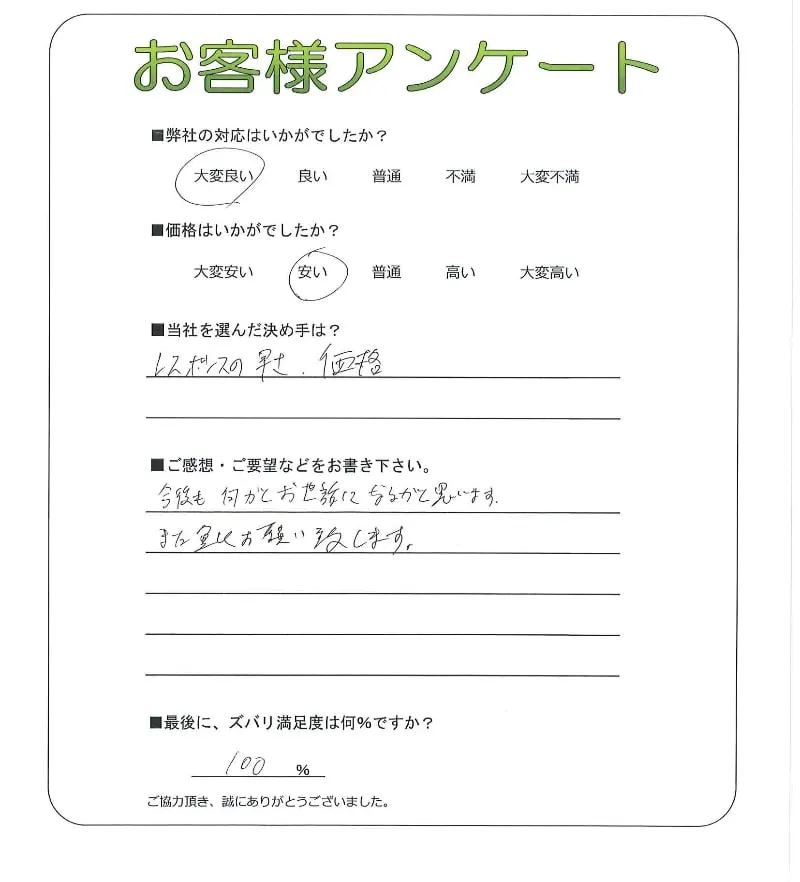 お客様アンケート
■弊社の対応はいかがでしたか？
大変良い 良い 普通 不満 大変不満
■価格はいかがでしたか？
大変安い 安い 普通 高い 大変高い
■当社を選んだ決め手は？
レスポンスの早さ、価格
■ご感想・ご要望などをお書き下さい。
今後も何かとお世話になるかと思います。
また宜しくお願い致します。
■最後に、ズバリ満足度は何％ですか？
100 ％
ご協力頂き、誠にありがとうございました。